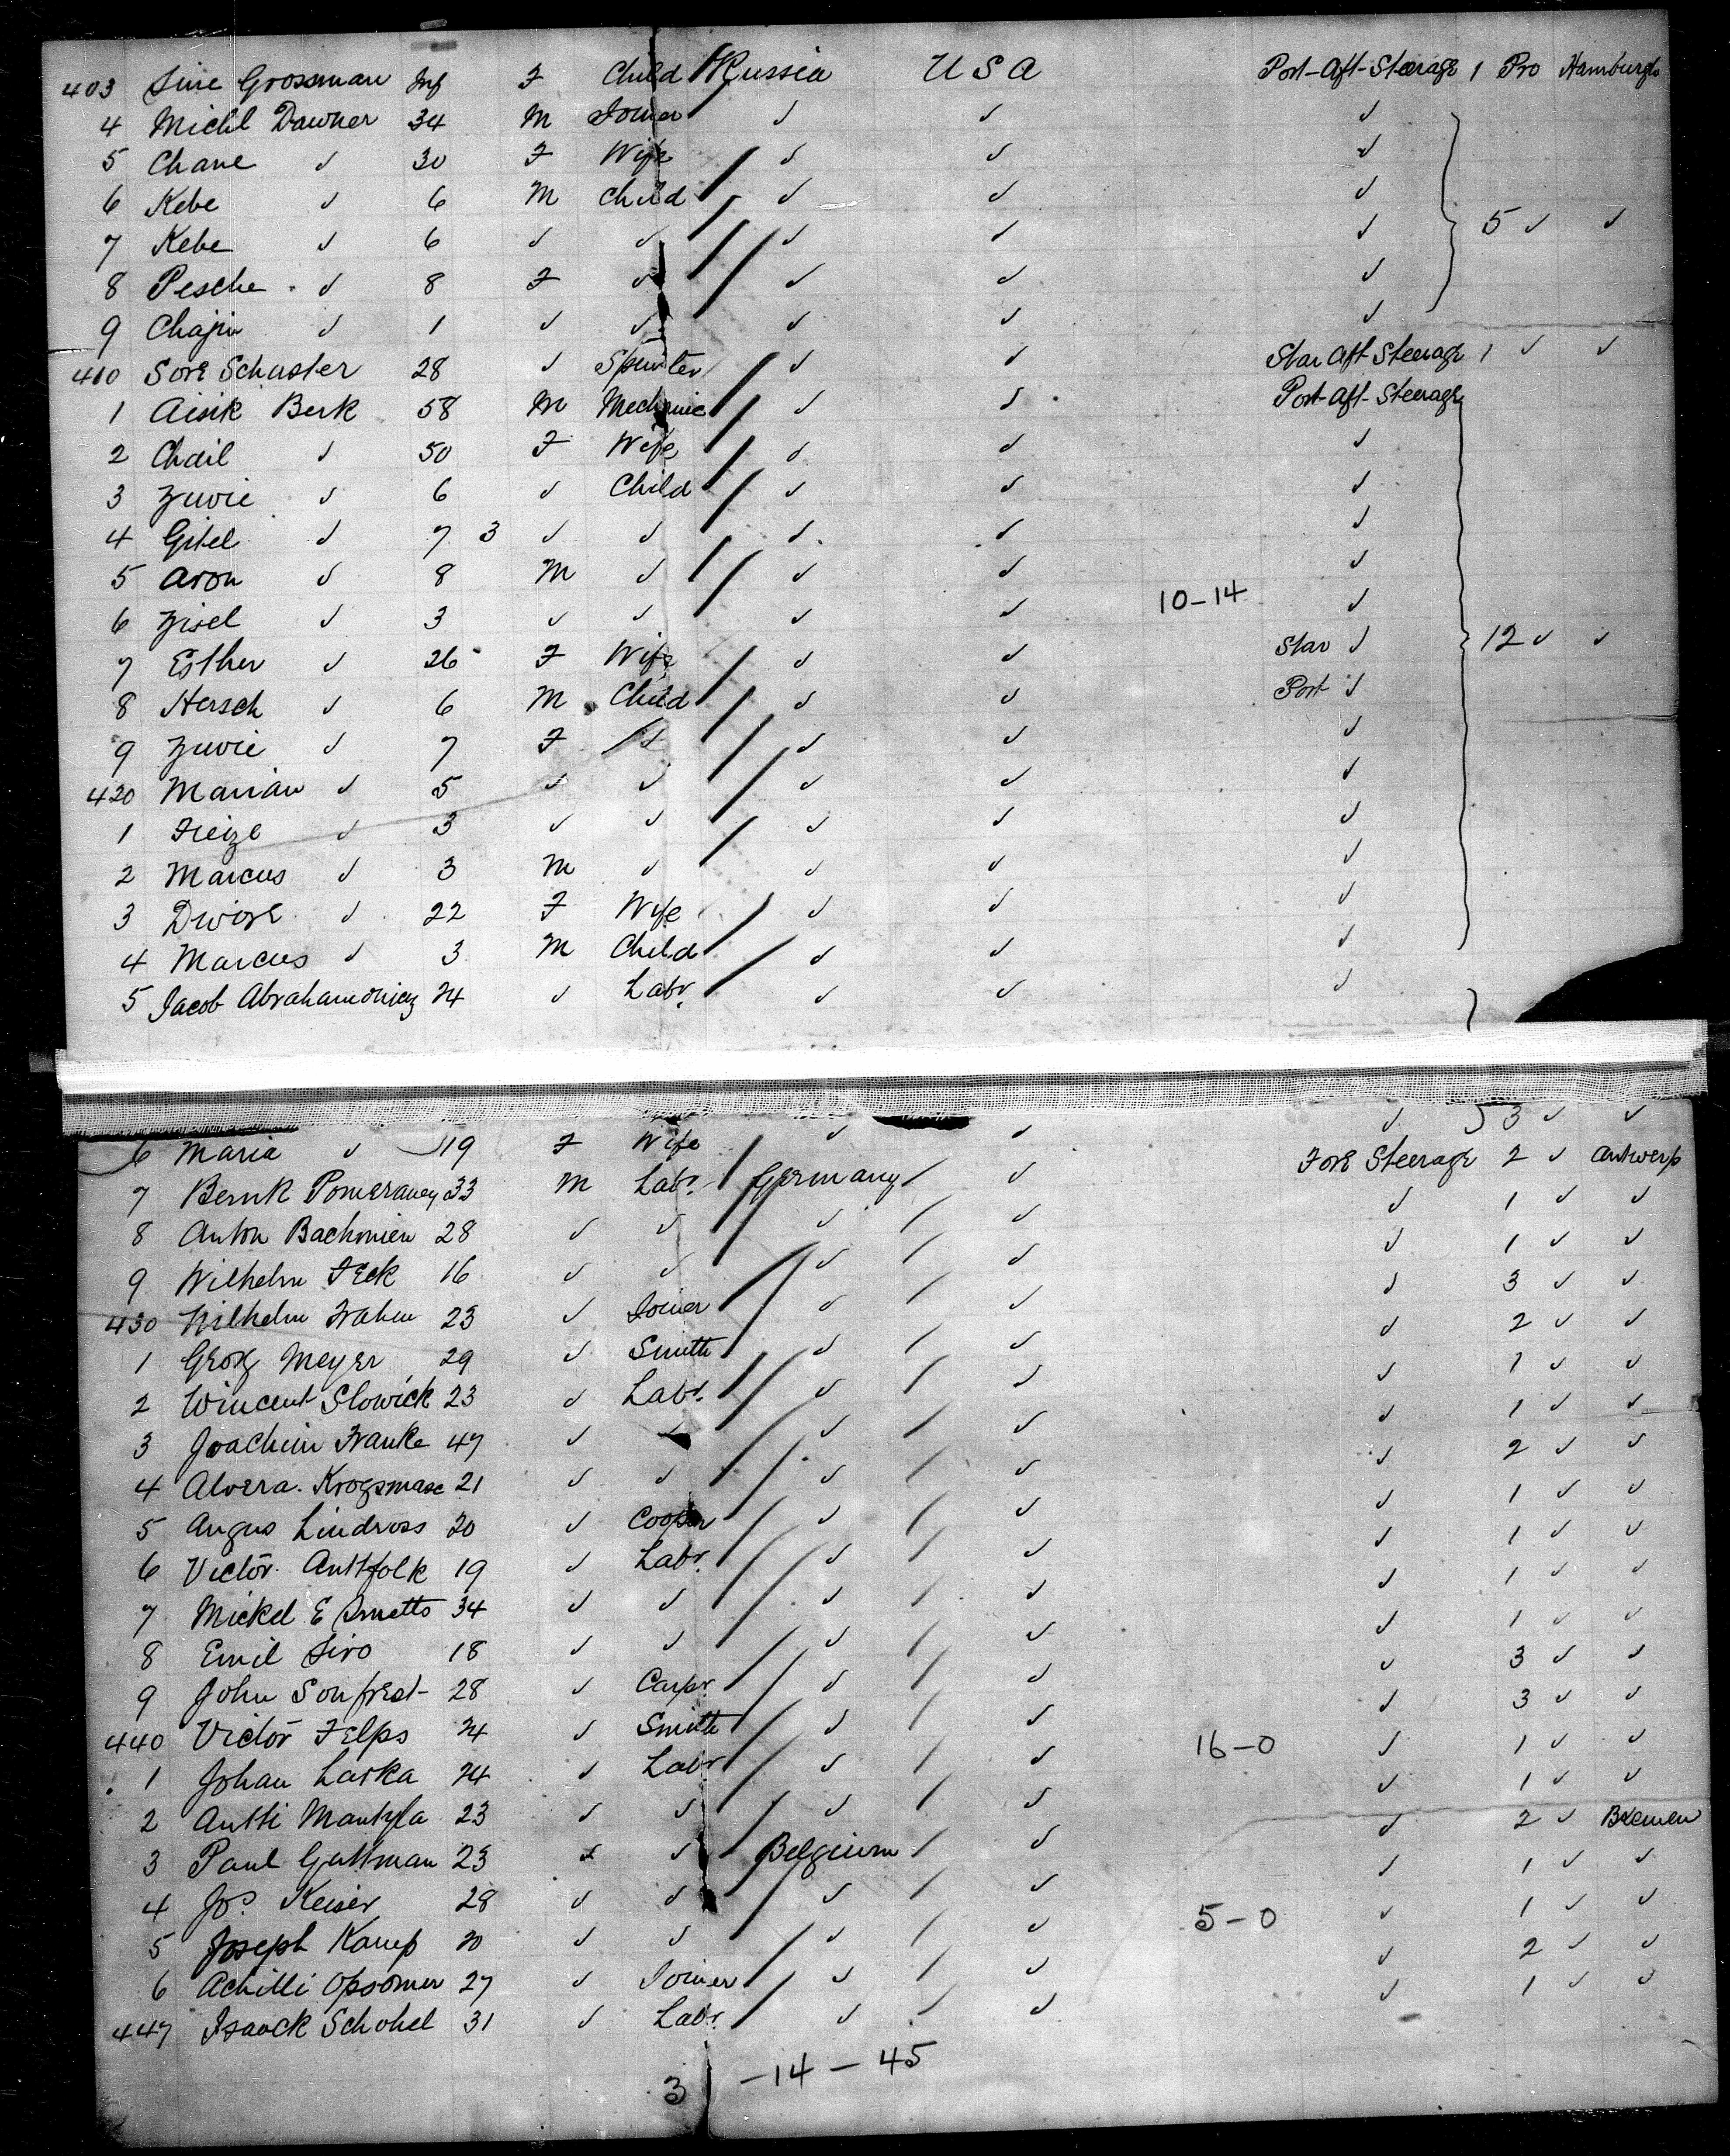 403 Sine Grossman Inf F Child Russia USA Port-Aft-Steerage 1 Pro Hamburg
4 Michl Dawner 34 M Joiner ✓ ✓ ✓
5 Chane ✓ 30 F Wife ✓ ✓ ✓
6 Kebe ✓ 6 M Child ✓ ✓ ✓
7 Kebe ✓ 6 ✓ ✓ ✓ ✓ ✓ 5 ✓ ✓
8 Pesche ✓ 8 F ✓ ✓ ✓ ✓
9 Chajin ✓ 1 ✓ ✓ ✓ ✓ ✓
410 Sore Schuster 28 ✓ Spinster ✓ ✓ Star Aft Steerage 1 ✓ ✓
1 Aisik Berk 58 M Mechanic ✓ ✓ Port-Aft-Steerage
2 Chail ✓ 50 F Wife ✓ ✓ ✓
3 Zuvie ✓ 6 ✓ Child ✓ ✓ ✓
4 Gitel ✓ 7 3 ✓ ✓ ✓ ✓ ✓
5 Aron ✓ 8 M ✓ ✓ ✓ ✓
6 Zisel ✓ 3 ✓ ✓ ✓ ✓ 10-14 ✓
7 Esther ✓ 26 F Wife ✓ ✓ Star ✓ 12 ✓ ✓
8 Hersch ✓ 6 M Child ✓ ✓ Port ✓
9 Zuvie ✓ 7 F ✓ ✓ ✓ ✓
420 Marian ✓ 5 ✓ ✓ ✓ ✓ ✓
1 Freize ✓ 3 ✓ ✓ ✓ ✓ ✓
2 Marcus ✓ 3 M ✓ ✓ ✓ ✓
3 Dwore ✓ 22 F Wife ✓ ✓ ✓
4 Marcus ✓ 3 M Child ✓ ✓ ✓
5 Jacob Abrahamowicz 24 ✓ Labr ✓ ✓ ✓
6 Maria ✓ 19 F Wife ✓ ✓ ✓ 3 ✓ ✓
7 Bernk Pomeraney 33 M Labr Germany ✓ Fore Steerage 2 ✓ Antwerp
8 Anton Bachmien 28 ✓ ✓ ✓ ✓ ✓ 1 ✓ ✓
9 Wilhelm Feck 16 ✓ ✓ ✓ ✓ ✓ 1 ✓ ✓
430 Wilhelm Frahm 23 ✓ Joiner ✓ ✓ ✓ 3 ✓ ✓
1 Georg Meyer 29 ✓ Smith ✓ ✓ ✓ 2 ✓ ✓
2 Wincent Slowick 23 ✓ Labr ✓ ✓ ✓ 1 ✓ ✓
3 Joachim Franke 47 ✓ ✓ ✓ ✓ ✓ 1 ✓ ✓
4 Alvera Krogsmase 21 ✓ ✓ ✓ ✓ ✓ 2 ✓ ✓
5 Angus Lindross 20 ✓ Cooper ✓ ✓ ✓ 1 ✓ ✓
6 Victor Anttfolk 19 ✓ Labr ✓ ✓ ✓ 1 ✓ ✓
7 Mickel E 34 ✓ ✓ ✓ ✓ ✓ 1 ✓ ✓
8 Emil Siro 18 ✓ ✓ ✓ ✓ ✓ 1 ✓ ✓
9 John Sonfrest 28 ✓ Carpr ✓ ✓ ✓ 3 ✓ ✓
440 Victor Felps 24 ✓ Smith ✓ ✓ ✓ 3 ✓ ✓
1 Johan Laska 24 ✓ Labr ✓ ✓ 16-0 ✓ 1 ✓ ✓
2 Antti Mantyla 23 ✓ ✓ ✓ ✓ ✓ 1 ✓ ✓
3 Paul Guttman 23 ✓ ✓ Belgium ✓ ✓ 2 ✓ Bremen
4 Jos. Keiser 28 ✓ ✓ ✓ ✓ ✓ 1 ✓ ✓
5 Joseph Kamp 20 ✓ ✓ ✓ ✓ 5-0 ✓ 1 ✓ ✓
6 Achilli Opsomer 27 ✓ Joiner ✓ ✓ ✓ 2 ✓ ✓
447 Isaack Schohel 31 ✓ Labr ✓ ✓ ✓ 1 ✓ ✓
3 -14-45